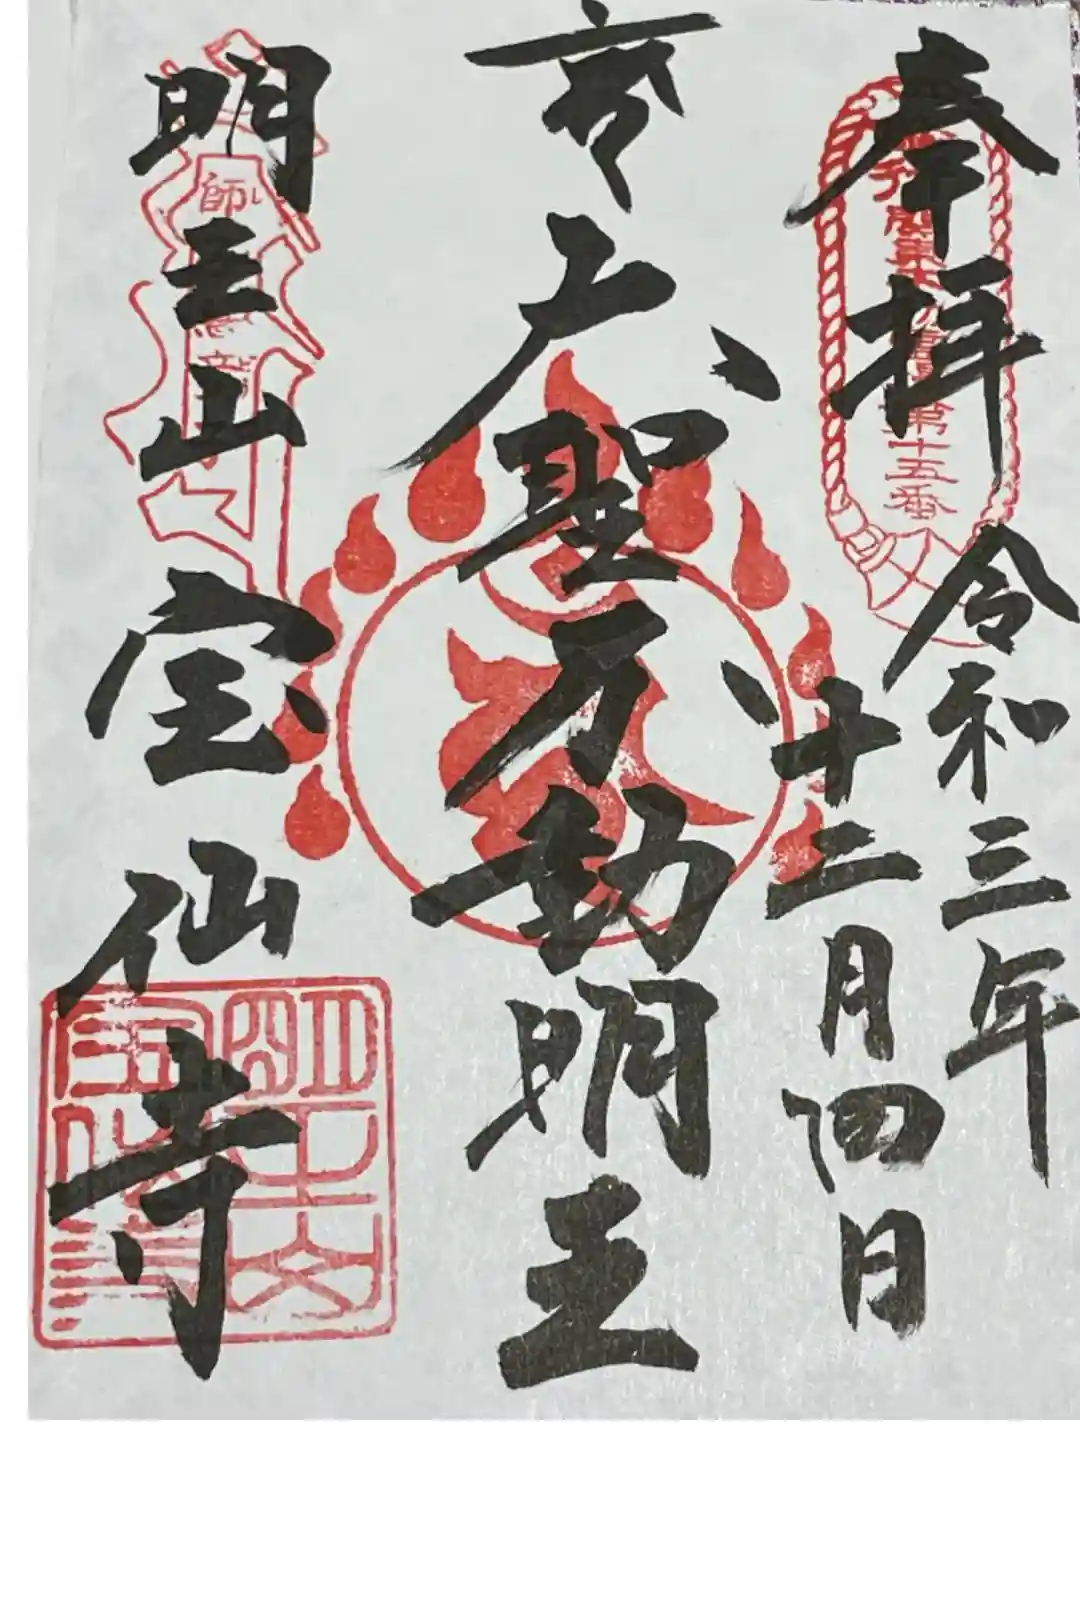 奉拝
令和三年
十二月四日
大聖不動明王
明王山
宝仙寺
第十五番
師
明王山